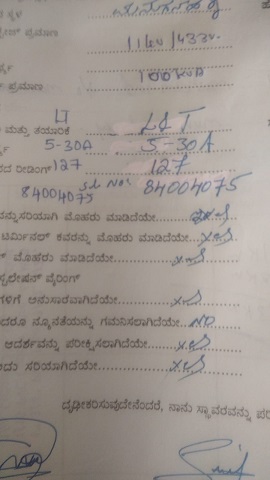 ವೋಲ್ಟೇಜ್ ಪ್ರಮಾಣ 11kv/433v
ಪ್ರಮಾಣ 100KVA
LT
ಮತ್ತು ತಯಾರಿಕೆ L&T
5-30A 5-30A
ರೀಡಿಂಗ್ 127 127
84004075 Sl No: 84004075
ಸರಿಯಾಗಿ ಮೊಹರು ಮಾಡಿದೆಯೇ yes
ಟರ್ಮಿನಲ್ ಕವರನ್ನು ಮೊಹರು ಮಾಡಿದೆಯೇ yes
ಮೊಹರು ಮಾಡಿದೆಯೇ yes
ವೈರಿಂಗ್
ಅನುಸಾರವಾಗಿದೆಯೇ yes
ನ್ಯೂನತೆಯನ್ನು ಗಮನಿಸಲಾಗಿದೆಯೇ NO
ಆದರ್ಶವನ್ನು ಪರೀಕ್ಷಿಸಲಾಗಿದೆಯೇ yes
ಸರಿಯಾಗಿದೆಯೇ yes
ದೃಢೀಕರಿಸುವುದೇನೆಂದರೆ, ನಾನು ಸ್ಥಾವರವನ್ನು